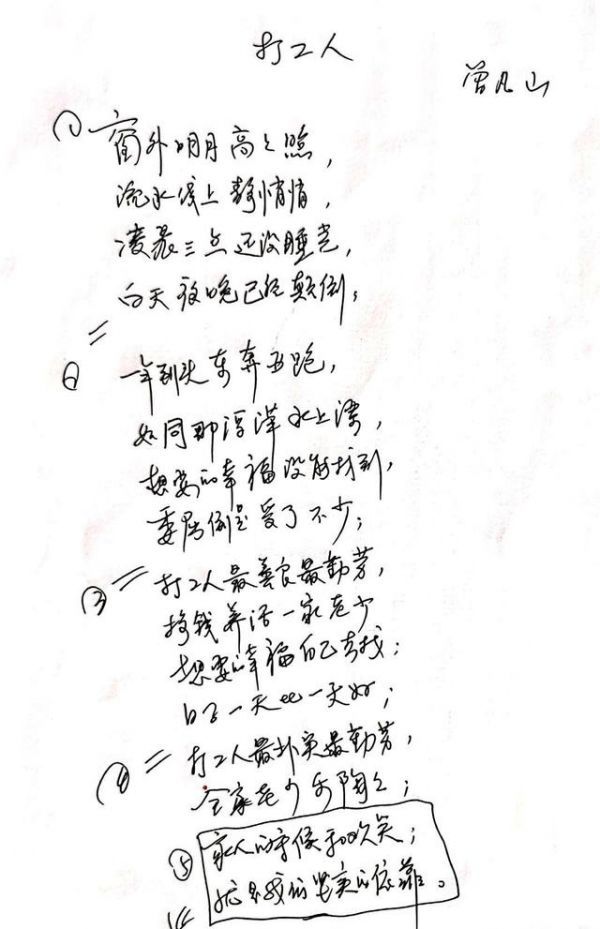 打工人
曾凡山
① 窗外明月高高照，
流水线上静悄悄，
凌晨三点还没睡觉，
白天夜晚已经颠倒；
② 一年到头东奔西跑，
如同那浮萍水上漂，
想要的幸福没能找到，
委屈倒是受了不少；
③ 打工人最善良最勤劳，
挣钱养活一家老少
想要的幸福自己去找；
日子一天比一天好；
④ 打工人最朴实最勤劳，
全家老少乐陶陶；
⑤ 家人的守候和欢笑；
就是我们坚实的依靠。